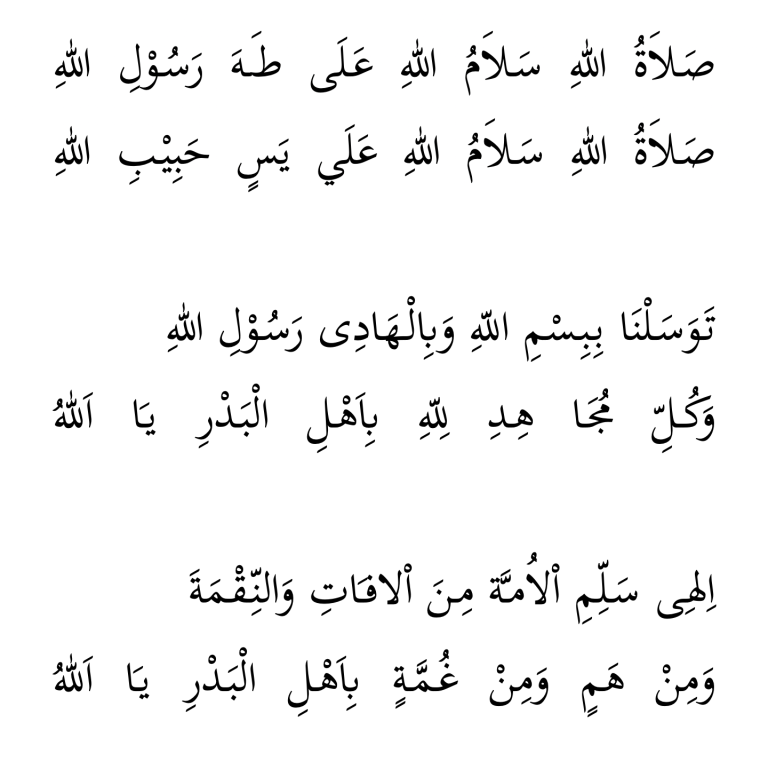 صَلاَةُ اللهِ سَلاَمُ اللهِ عَلَى طَهَ رَسُوْلِ اللهِ
صَلاَةُ اللهِ سَلاَمُ اللهِ عَلَي يَسٍ حَبِيْبِ اللهِ
تَوَسَلْنَا بِبِسْمِ اللّهِ وَبِالْهَادِى رَسُوْلِ اللهِ
وَكُلِّ مُجَا هِدِ لِلّهِ بِاَهْلِ الْبَدْرِ يَا اَللهُ
اِلهِى سَلِّمِ اْلاُمَّة مِنَ اْلافَاتِ وَالنِّقْمَةَ
وَمِنْ هَمٍ وَمِنْ غُمَّةٍ بِاَهْلِ الْبَدْرِ يَا اَللهُ